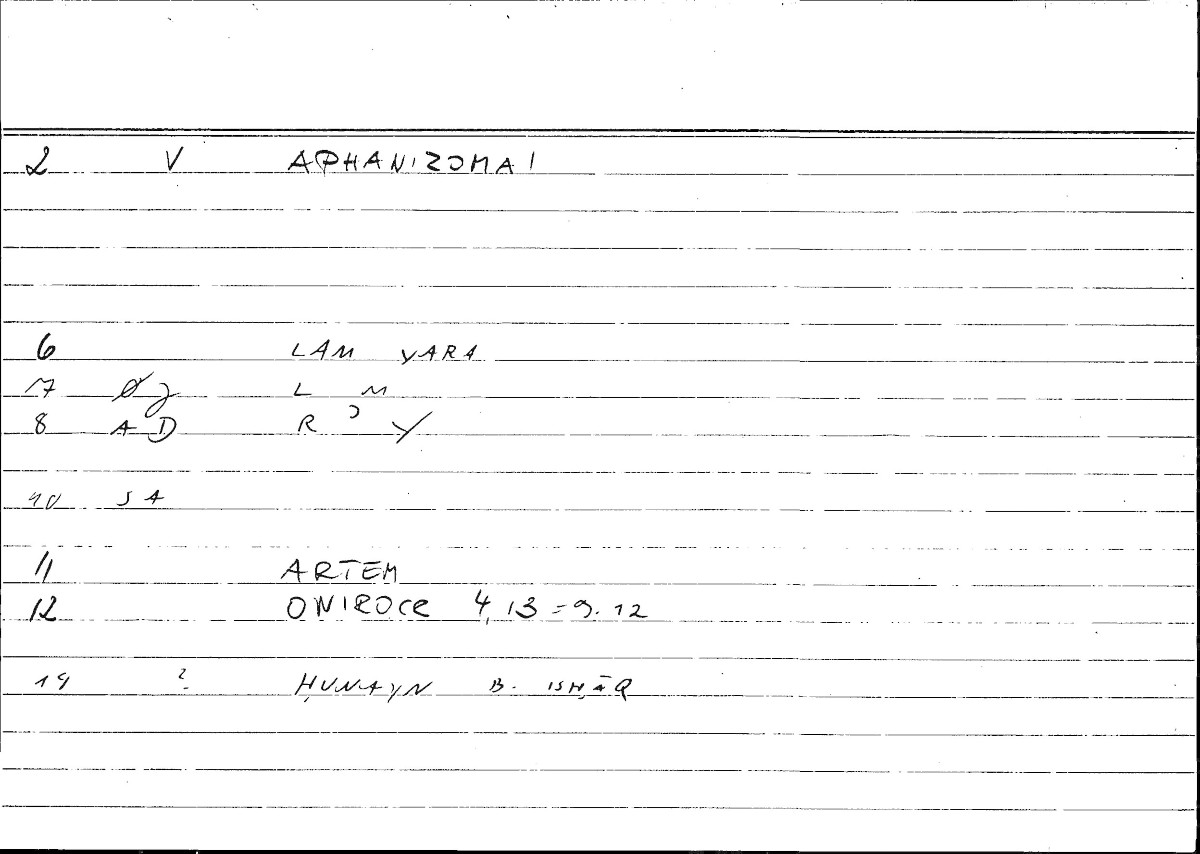 2 V APHANIZOMAI
6 LAM YARA
7 L M
8 AD R ʾ Y
10 SA
11 ARTEM
12 ONIROCR 4,13 = 9.12
14 ? ḤUNAYN B. ISḤĀQ